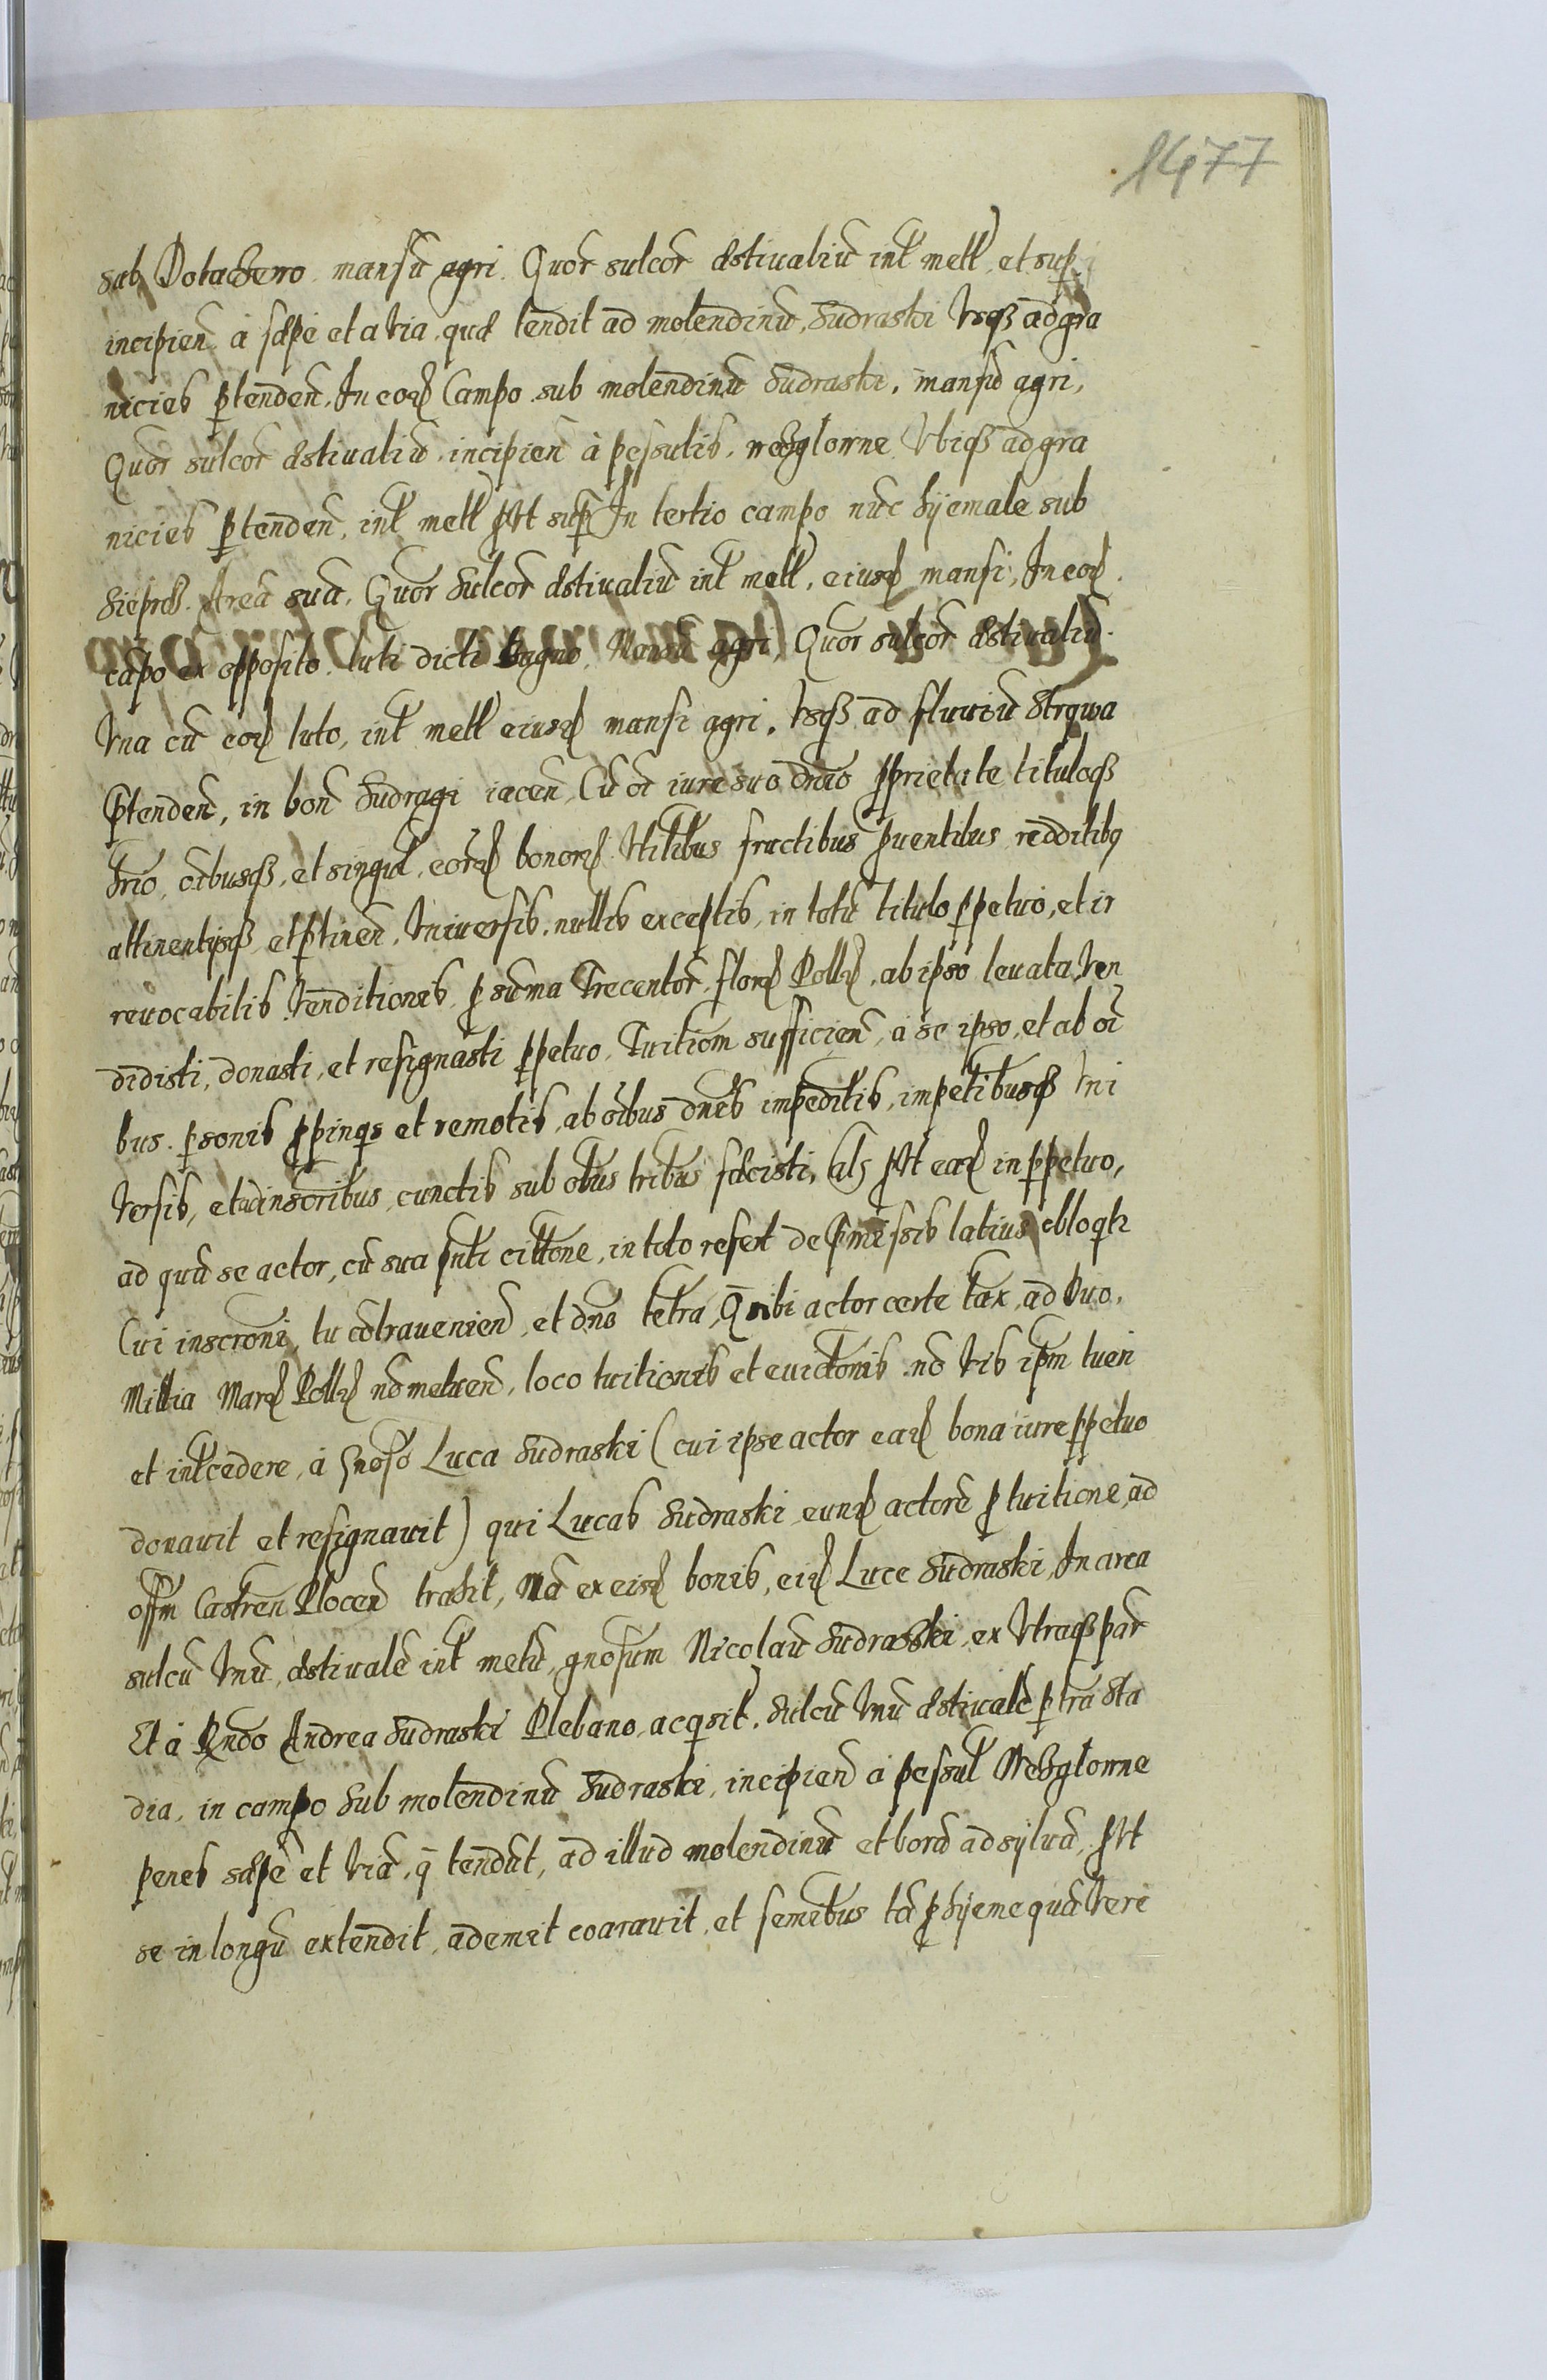 1477
sab Dotachemo mansū agri Quor sulcor æstiualiū int mett et sup
incipien à sæpe et a via quæ tendit ad molendinū Sudraski vsqȝ ad gra
nicies ptenden, In eoꝝ Campo sub molendinū Sudraski, mansū agri,
Quor sulcor æstiualiū incipien à pessulis, vsqȝ ad gra
nicies ptenden, int mett put sup In tertio campo nūc hyemale sub
Areā suā, Quor Sulcor æstiualiū int mett, eiusd mansi, In eod
cāpo ex opposito luti dicti bagno, Mansū agri, Quor sulcor æstiualiū
vna cū eod luto, int mett eiusd mansi agri, vsqȝ ad fluuiū
ptenden, in bon Sudragi iacen, Cū oi iure suo dnio pprietate tituloqȝ
hrio, oibusqȝ, et singul, eord bonord vtilitbus fructibus puentibus redditibq
attinentijsqȝ et ptinen, vniuersis nullis exceptis, in totū titulo ppetuo, et ir
reuocabilis venditionis, p summa Trecentor, florꝝ Pollꝝ, ab ipso leuata, ven
didisti, donasti, et resignasti ppetuo, Tuitiom sufficien, à se ipso, et ab oi
bus psonis ppinqs et remotis, ab oibus dnis impeditis, impetibusqȝ vni
versis, et adinscribus, cunctis sub obus tribus fecisti, put ead in ppetuo,
ad quā se actor, cū sua pnti cittone, in toto refert de pmissis latius obloqt
Cui inscroni, tu contrauenien, et dno tetra, Q tibi actor certe tax, ad Duo
Millia Marꝝ Pollꝝ nō metuen, loco tuitionis et euictonis nō vis ipm tueri
et intcedere, à Gnoso Luca Sudraski (cui ipse actor ead bona iure ppetuo
donauit et resignauit) qui Lucas Sudraski eund actorē p tuitione ad
offm Castren Plocen traxit, Nā ex eisd bonis, eid Luce Sudraski, In area
sulcū vnū, æstiualē int metū, gnosum Nicolaū Sudraski, ex vtraqȝ par
Et à Rndo Andrea Sudraski Plebano, acqsit, Sulcū vnū æstiualē p tria sta
dia, in campo Sub molendinū Sudraski, incipien à pessul
penes sæpē et viā, q tendūt, ad illud molendinū et borā ad syluā, put
se in longū extendit, ademit coarauit, et semetbus tā p hyeme quā vere